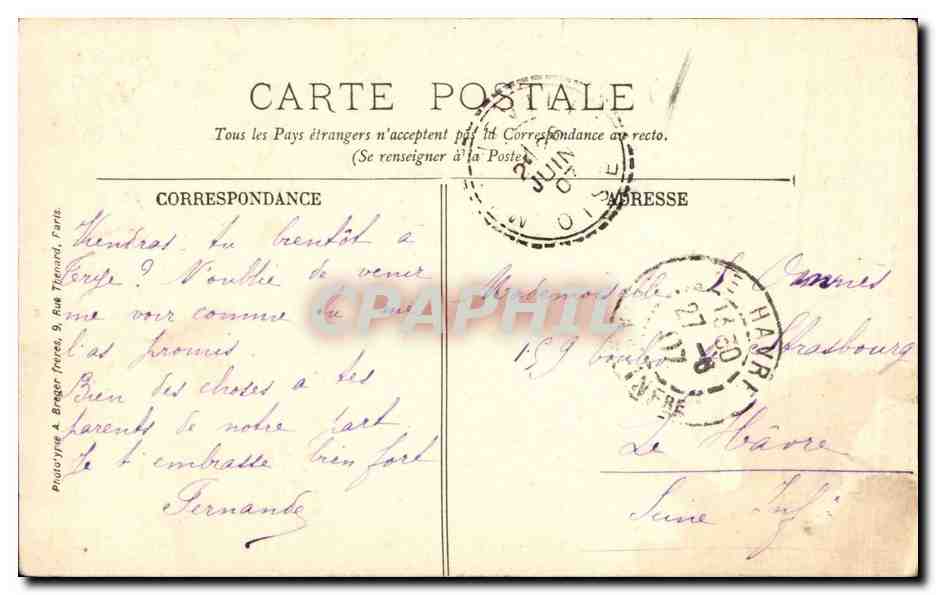 CARTE POSTALE
Tous les Pays étrangers n'acceptent pas la Correspondance au recto.
(Se renseigner à la Poste
CORRESPONDANCE
Viendras tu bientôt à
? N'oublie de venir
me voir comme tu me
l'as promis.
Bien des choses à tes
parents de notre part
Je t'embrasse bien fort
Fernande
ADRESSE
Mademoiselle L.
159 Strasbourg
Le Hâvre
Seine Infre
Phototypie A. Breger frères, 9, Rue Thénard, Paris.
JUIN
07
OISE
LE HAVRE
13 30
27 -6
07
INFRE
CPAPHIL